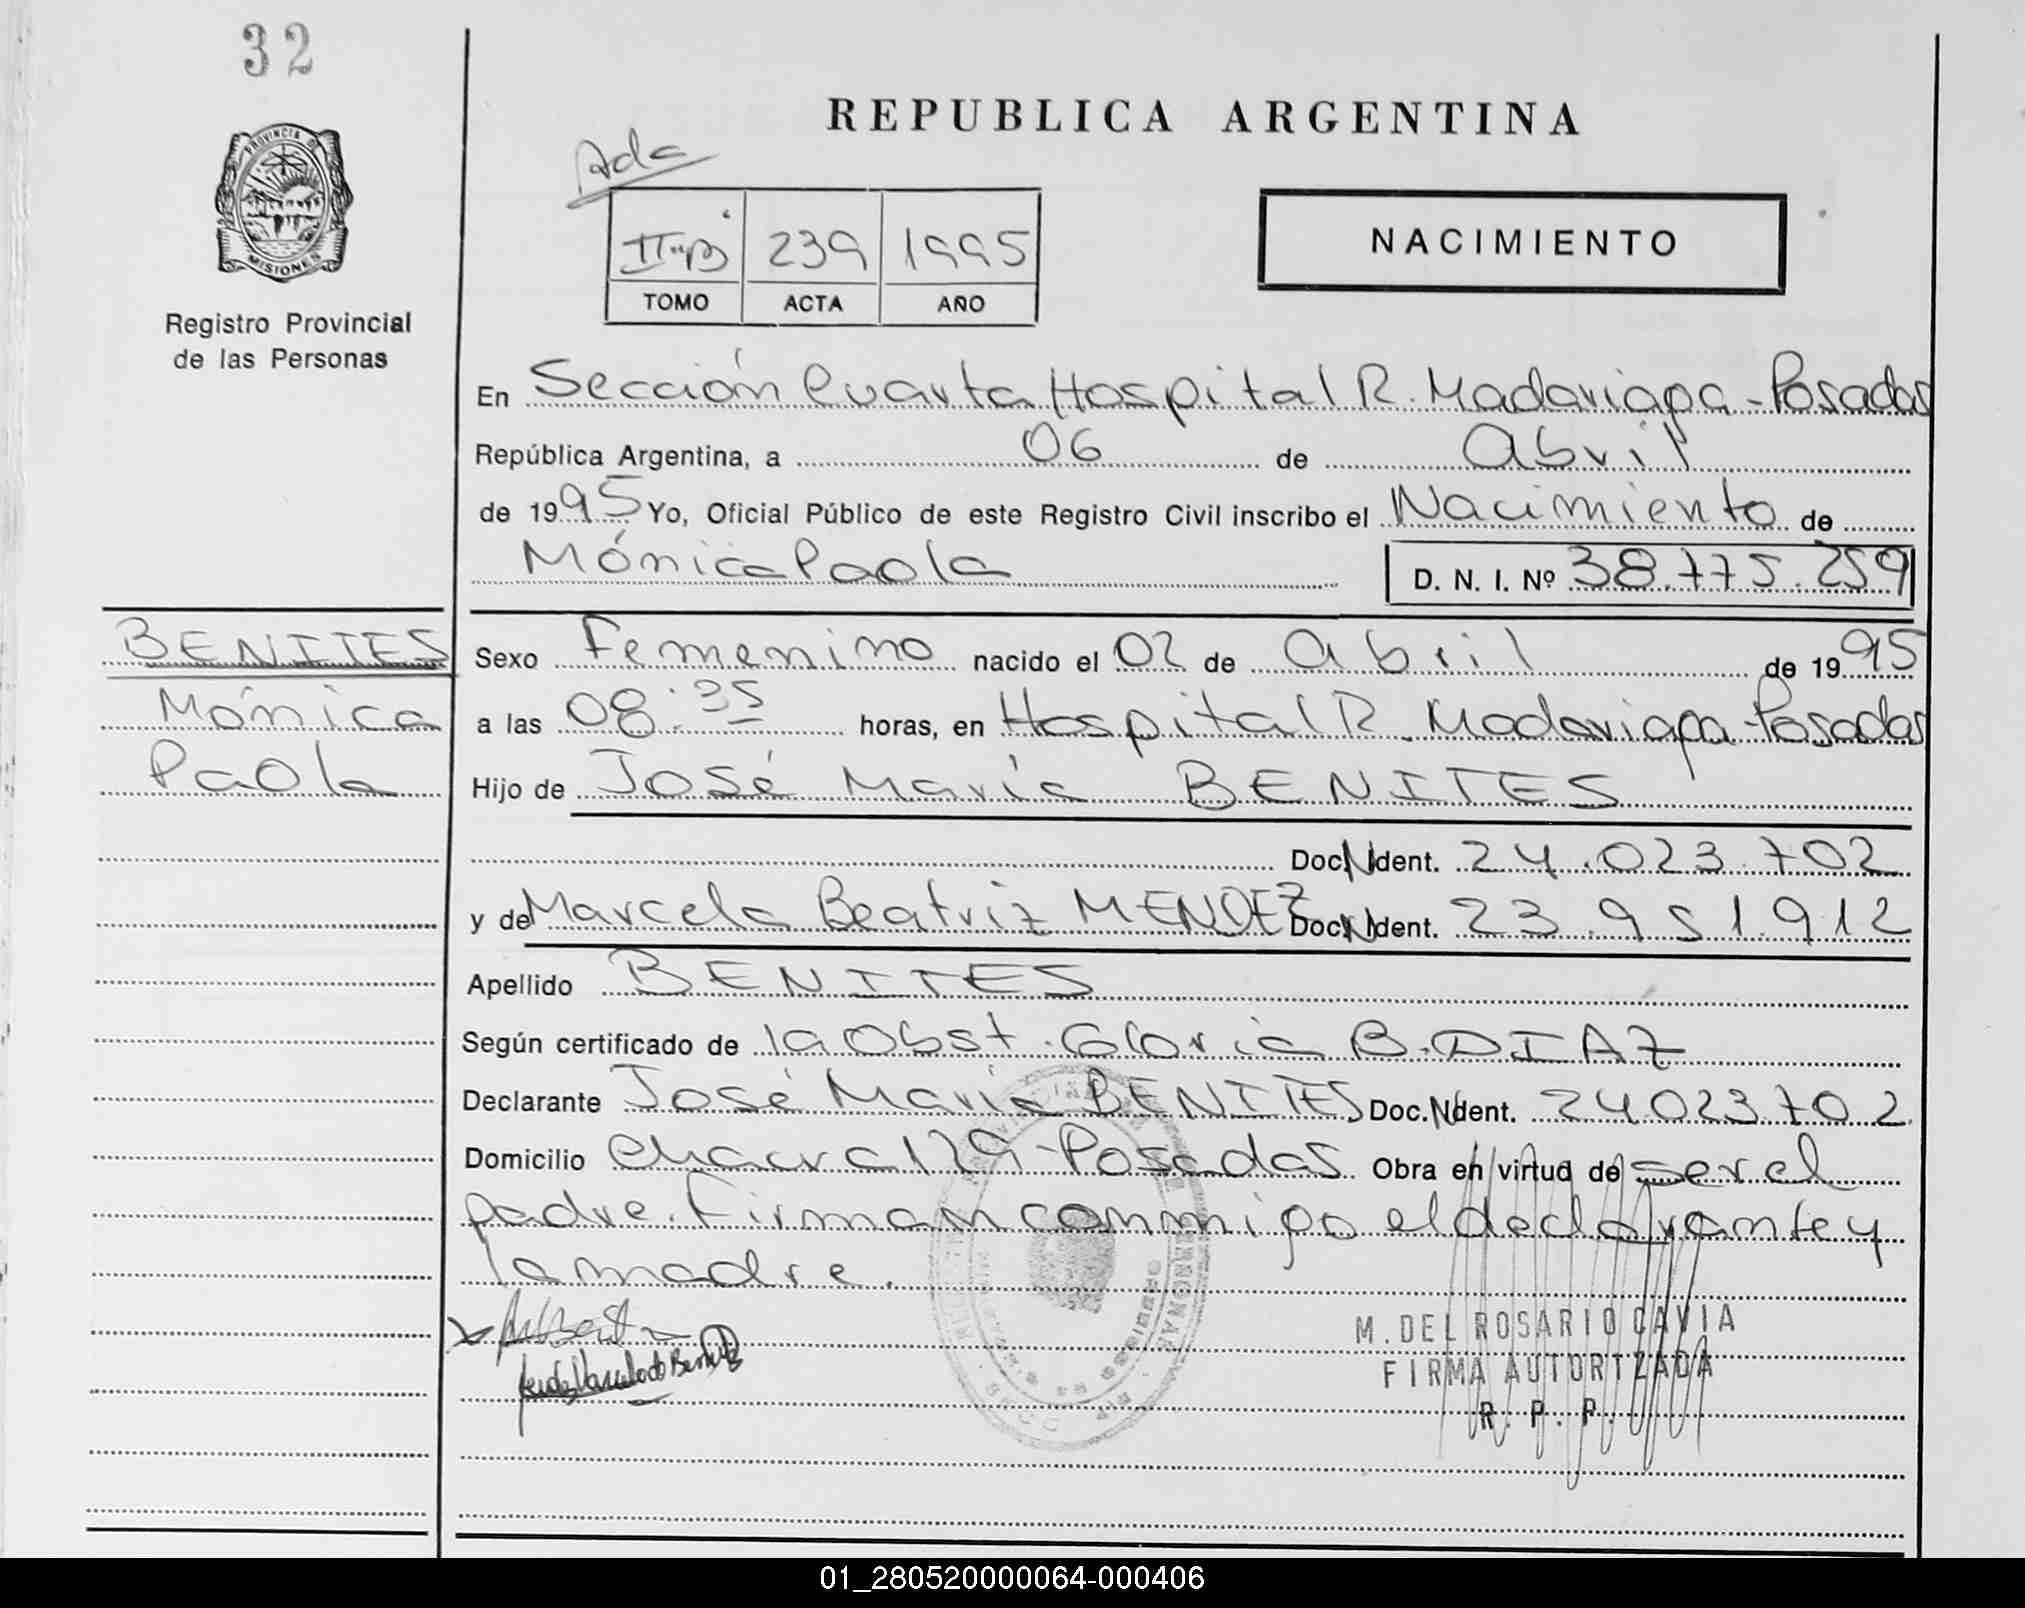 32
PROVINCIA DE
MISIONES
Registro Provincial
de las Personas
REPUBLICA ARGENTINA
Ada
II"B" 239 1995
TOMO ACTA AÑO
NACIMIENTO
En Sección Cuarta Hospital R. Madariaga - Posadas
República Argentina, a 06 de Abril
de 1995 Yo, Oficial Público de este Registro Civil inscribo el Nacimiento de
Mónica Paola D. N. I. Nº 38.775.259
BENITES
Mónica
Paola
Sexo Femenino nacido el 02 de Abril de 1995
a las 08:35 horas, en Hospital R. Madariaga - Posadas
Hijo de José María BENITES
Doc. N Ident. 24.023.702
y de Marcela Beatriz MENDEZ Doc. N Ident. 23.951.912
Apellido BENITES
Según certificado de la Obst. Gloria B. DIAZ
Declarante José María BENITES Doc. N Ident. 24.023.702
Domicilio Chacra 129 - Posadas Obra en virtud de ser el
padre. Firman conmigo el declarante y
la madre.
M. DEL ROSARIO CAVIA
FIRMA AUTORIZADA
R. P. P.
01_280520000064-000406